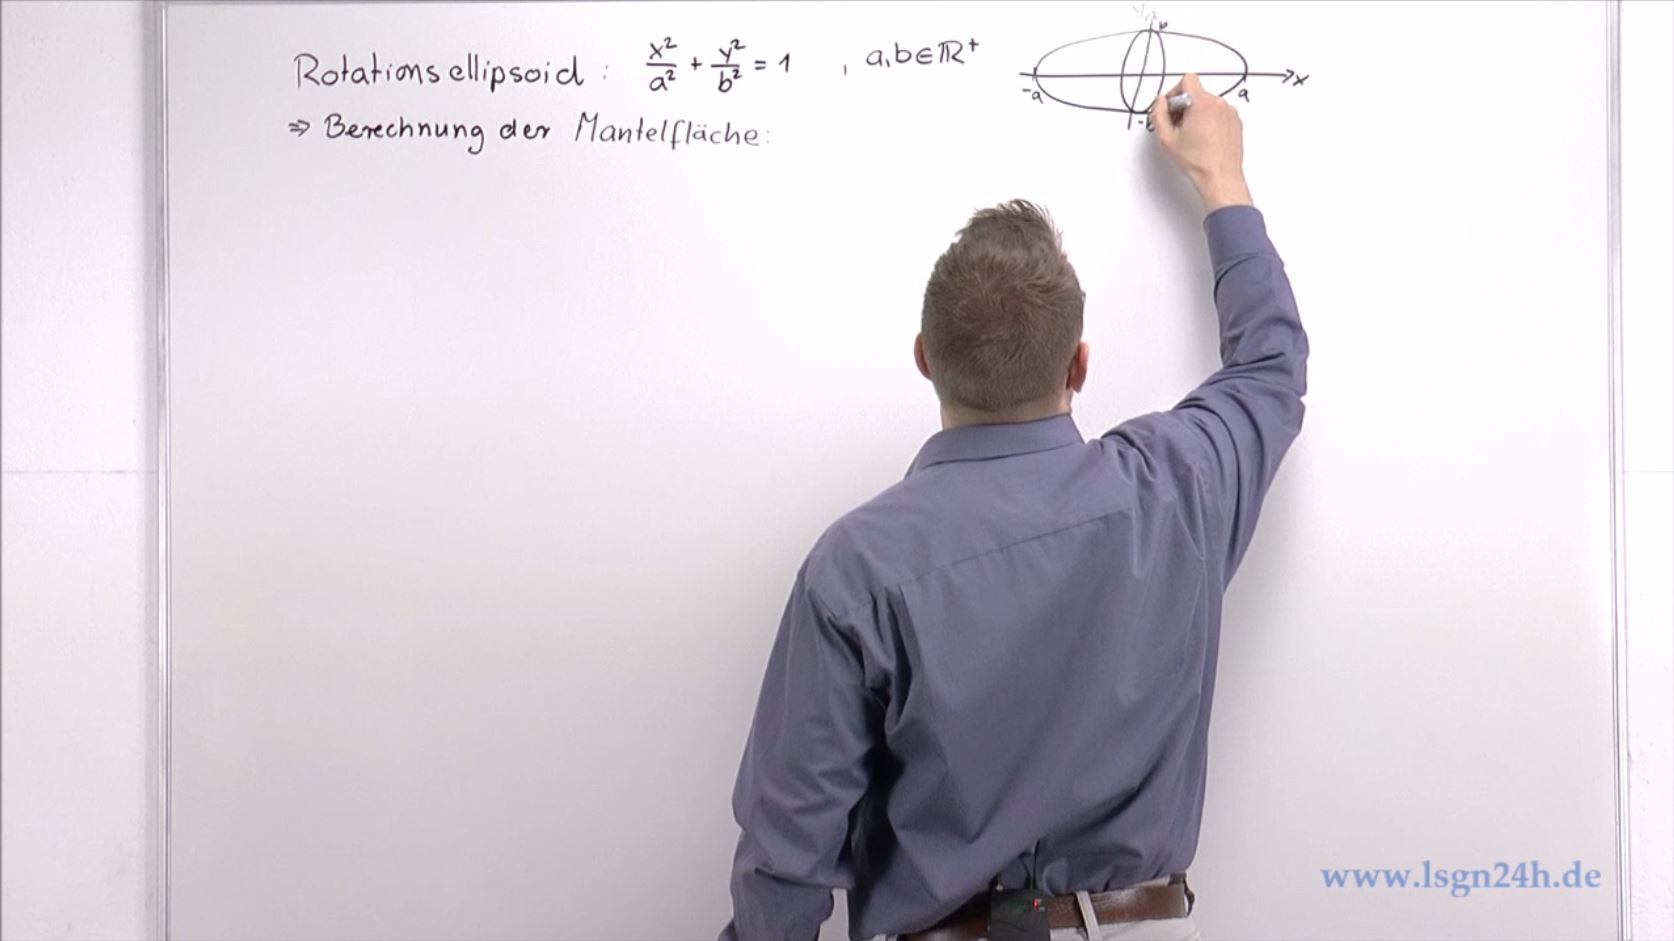 Rotationsellipsoid : x²/a² + y²/b² = 1 , a,b ∈ ℝ⁺
⇒ Berechnung der Mantelfläche:
b
-a a x
-b
www.lsgn24h.de